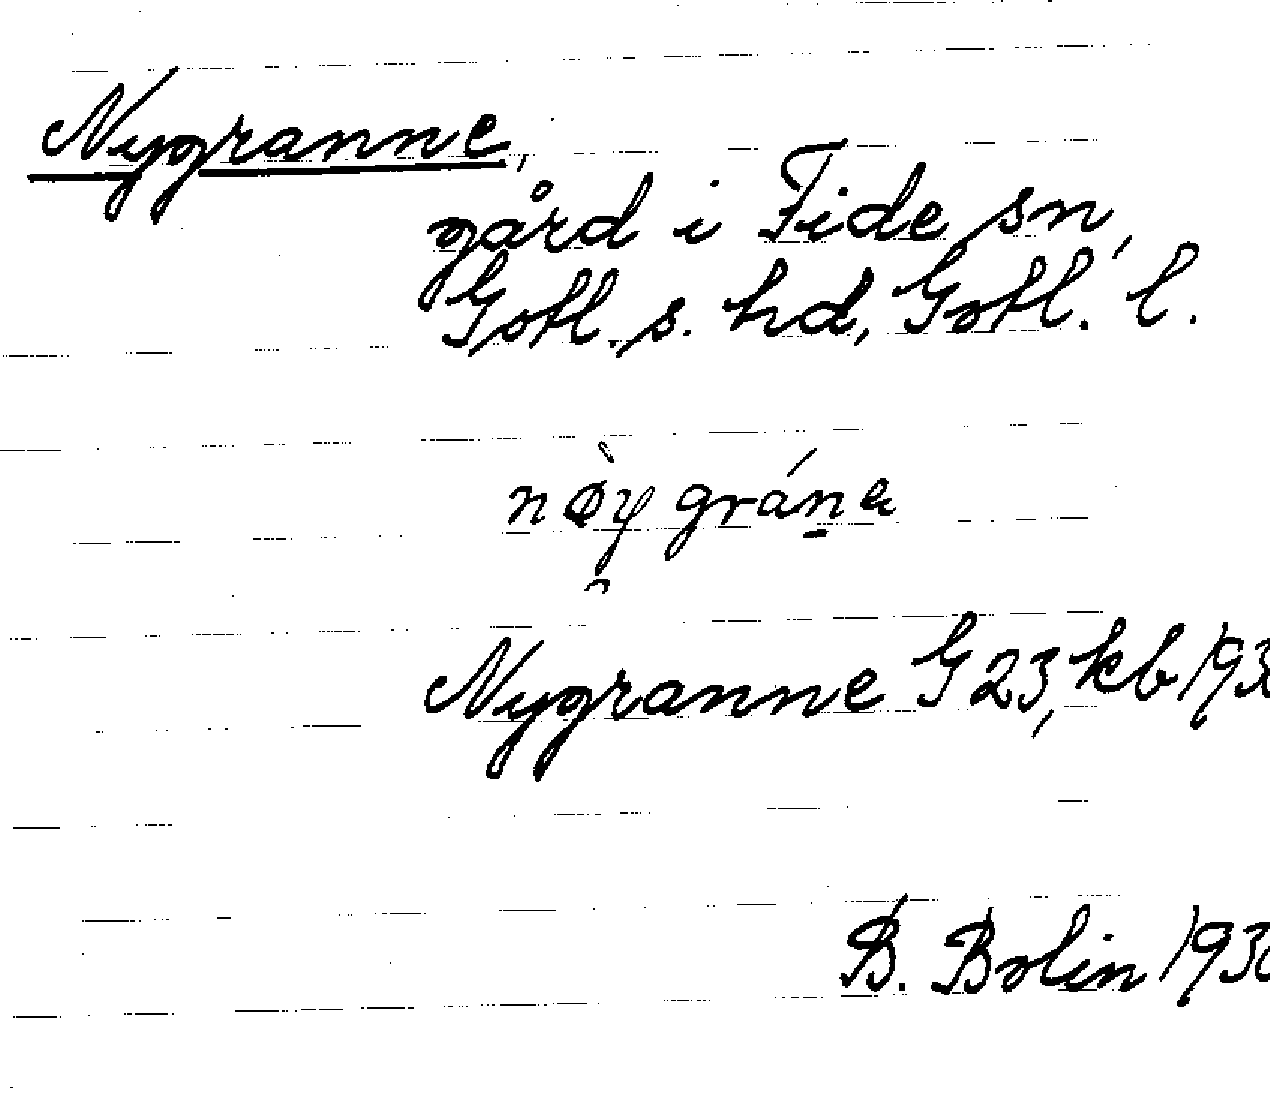 Nygranne,
gård i Fide sn,
Gotl. s. hd, Gotl. l.
Nygranne G 23, kb 193
B. Bolin 193